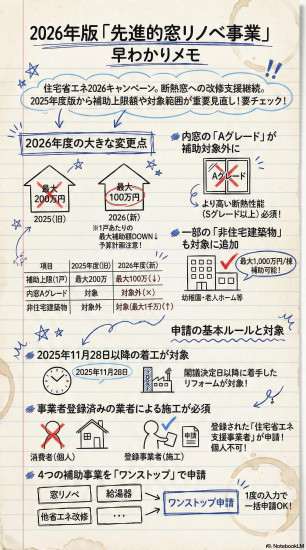 2026年版「先進的窓リノベ事業」
早わかりメモ
住宅省エネ2026キャンペーン。断熱窓への改修支援継続。
2025年度版から補助上限額や対象範囲が重要見直し!要チェック!
2026年度の大きな変更点
最大
200万円
2025(旧)
最大
100万円
2026(新)
※1戸あたりの
最大補助額DOWN↓
予算計画注意!
内窓の「Aグレード」が
補助対象外に
Aグレード
より高い断熱性能
(Sグレード以上)必須!
一部の「非住宅建築物」
も対象に追加
最大1,000万円/棟
補助可能!
幼稚園・老人ホーム等
項目 2025年度(旧) 2026年度(新)
補助上限(1戸) 最大200万 最大100万(↓)
内窓Aグレード 対象 対象外(×)
非住宅建築物 対象外 対象(最大1千万)(↑)
申請の基本ルールと対象
2025年11月28日以降の着工が対象
2025年11月28日
閣議決定日以降に着手した
リフォームが対象!
事業者登録済みの業者による施工が必須
消費者(個人)
申請
登録事業者(施工)
登録された「住宅省エネ
支援事業者」が申請!
個人不可!
4つの補助事業を「ワンストップ」で申請
窓リノベ
給湯器
他省エネ改修
…
ワンストップ申請
1度の入力で
一括申請OK!
NotebookLM